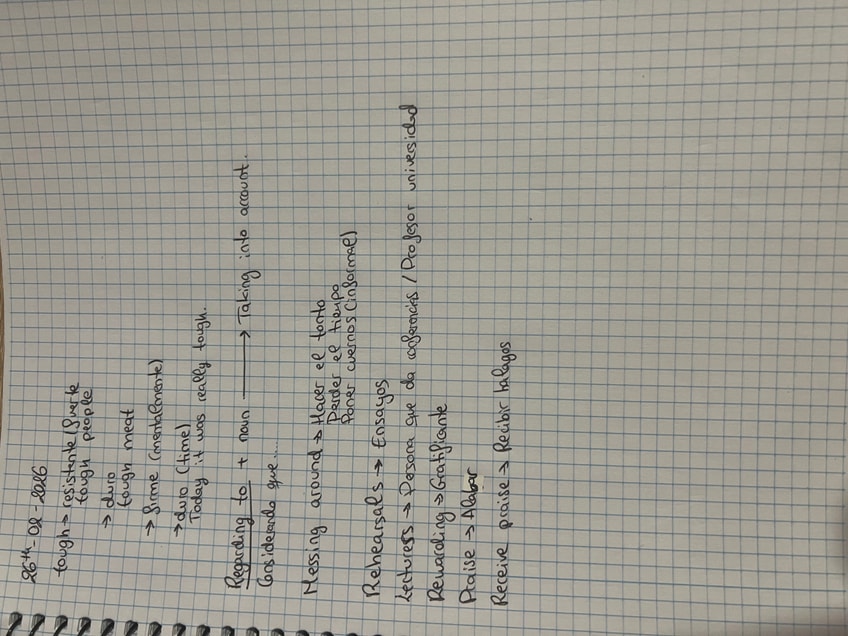 26th-02-2026
tough → resistente/fuerte
tough people
→ duro
tough meat
→ firme (mentalmente)
→ duro (time)
Today it was really tough.
Regarding to + noun → Taking into account.
Considerando que....
Messing around → Hacer el tonto
Perder el tiempo
Poner cuernos (informal)
Rehearsals → Ensayos
Lecturess → Persona que da conferencias / Profesor universidad
Rewarding → Gratificante
Praise → Alabar
Receive praise → Recibir halagos